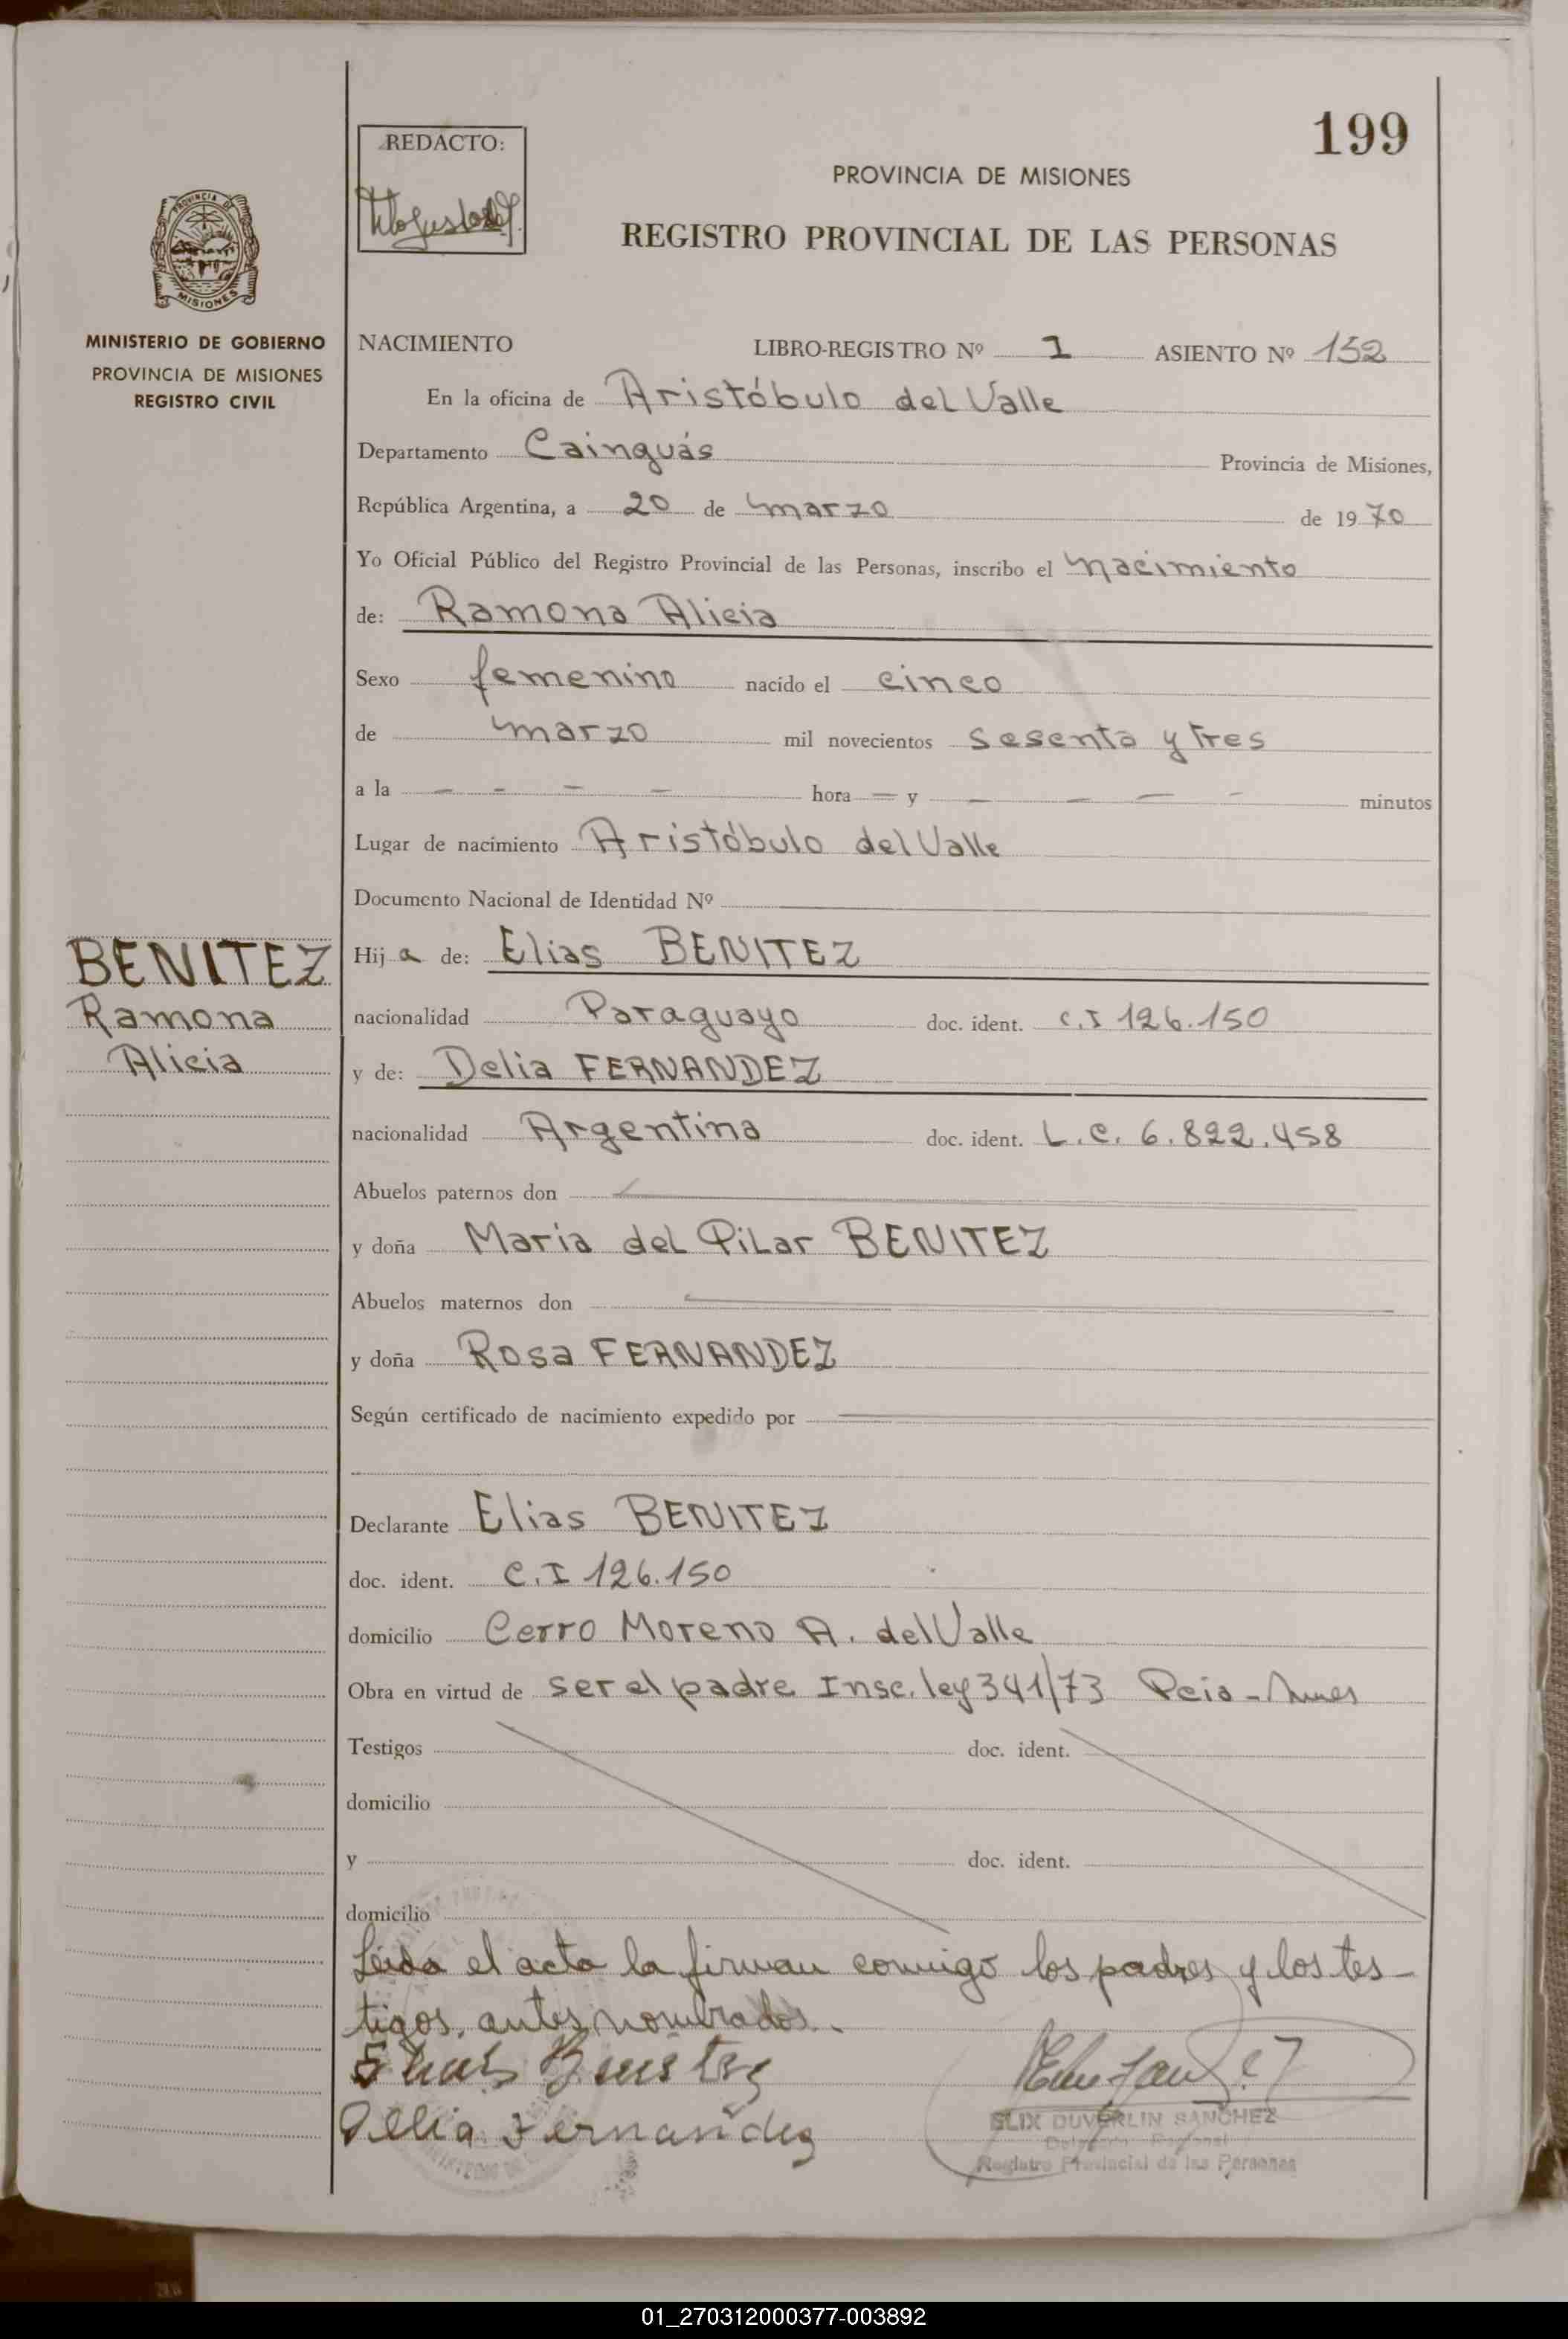 199
REDACTO:
PROVINCIA DE MISIONES
REGISTRO PROVINCIAL DE LAS PERSONAS
PROVINCIA DE
MISIONES
MINISTERIO DE GOBIERNO
PROVINCIA DE MISIONES
REGISTRO CIVIL
NACIMIENTO LIBRO-REGISTRO Nº 1 ASIENTO Nº 152
En la oficina de Aristóbulo del Valle
Departamento Cainguás Provincia de Misiones,
República Argentina, a 20 de marzo de 19 70
Yo Oficial Público del Registro Provincial de las Personas, inscribo el nacimiento
de: Ramona Alicia
Sexo femenino nacido el cinco
de marzo mil novecientos sesenta y tres
a la - - - - hora - y - - - - minutos
Lugar de nacimiento Aristóbulo del Valle
Documento Nacional de Identidad Nº
BENITEZ
Ramona
Alicia
Hija de: Elias BENITEZ
nacionalidad Paraguayo doc. ident. C.I 126.150
y de: Delia FERNANDEZ
nacionalidad Argentina doc. ident. L.C. 6.822.458
Abuelos paternos don
y doña Maria del Pilar BENITEZ
Abuelos maternos don
y doña Rosa FERNANDEZ
Según certificado de nacimiento expedido por
Declarante Elias BENITEZ
doc. ident. C.I 126.150
domicilio Cerro Moreno A. del Valle
Obra en virtud de ser el padre Insc. ley 341/73 Pcia-
Testigos doc. ident.
domicilio
y doc. ident.
domicilio
Leida el acta la firman conmigo los padres y los tes-
tigos, antes nombrados.
Elias Benitez
Delia Fernandez
ELIX DUVERLIN SANCHEZ
Delegado Regional
Registro Provincial de las Personas
01_270312000377-003892